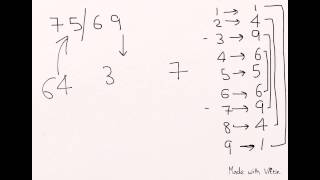 75/69
64 3 7
1 → 1
2 → 4
- 3 → 9
4 → 6
5 → 5
6 → 6
- 7 → 9
8 → 4
9 → 1
Made with